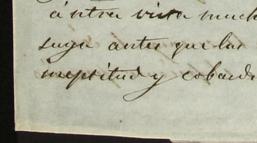 á ntra vista much
suya antes que las
ineptitud y cobard